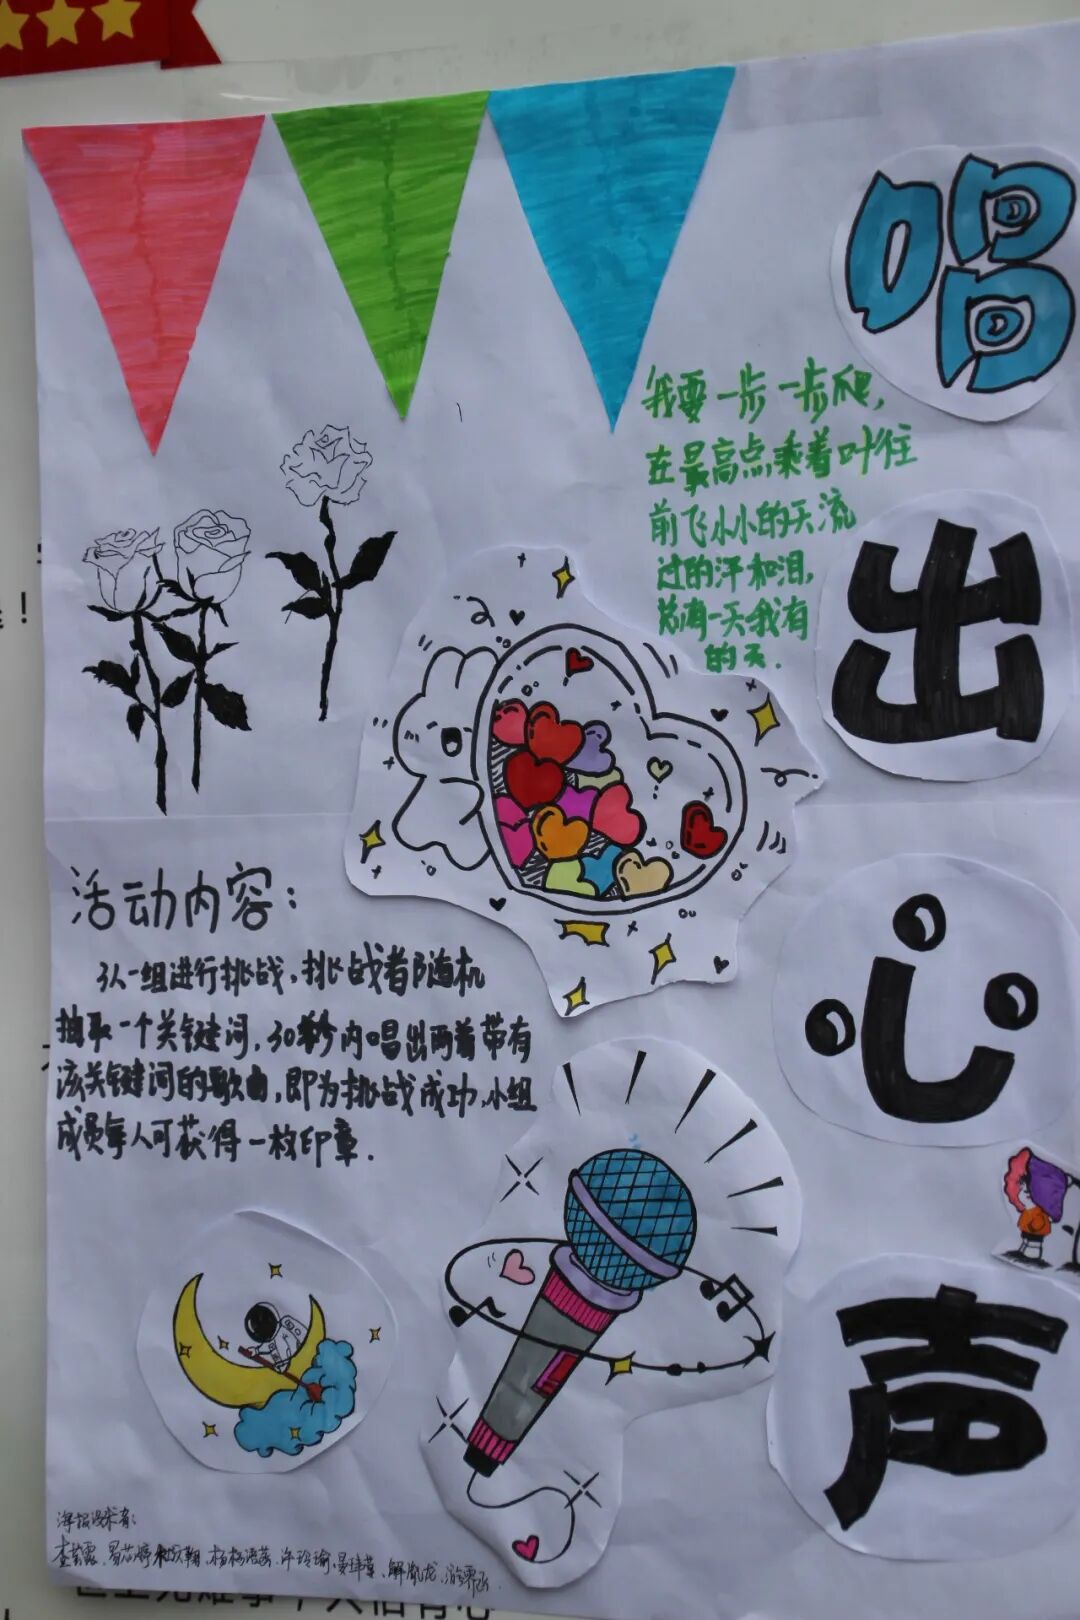 唱
出
心
声
我要一步一步爬,
在最高点乘着叶往
前飞小小的天流
过的汗和泪,
总有一天我有
的天.
活动内容:
3人一组进行挑战,挑战者随机
抽取一个关键词,30秒内唱出两首带有
该关键词的歌曲,即为挑战成功,小组
成员每人可获得一枚印章.
海报设计者: